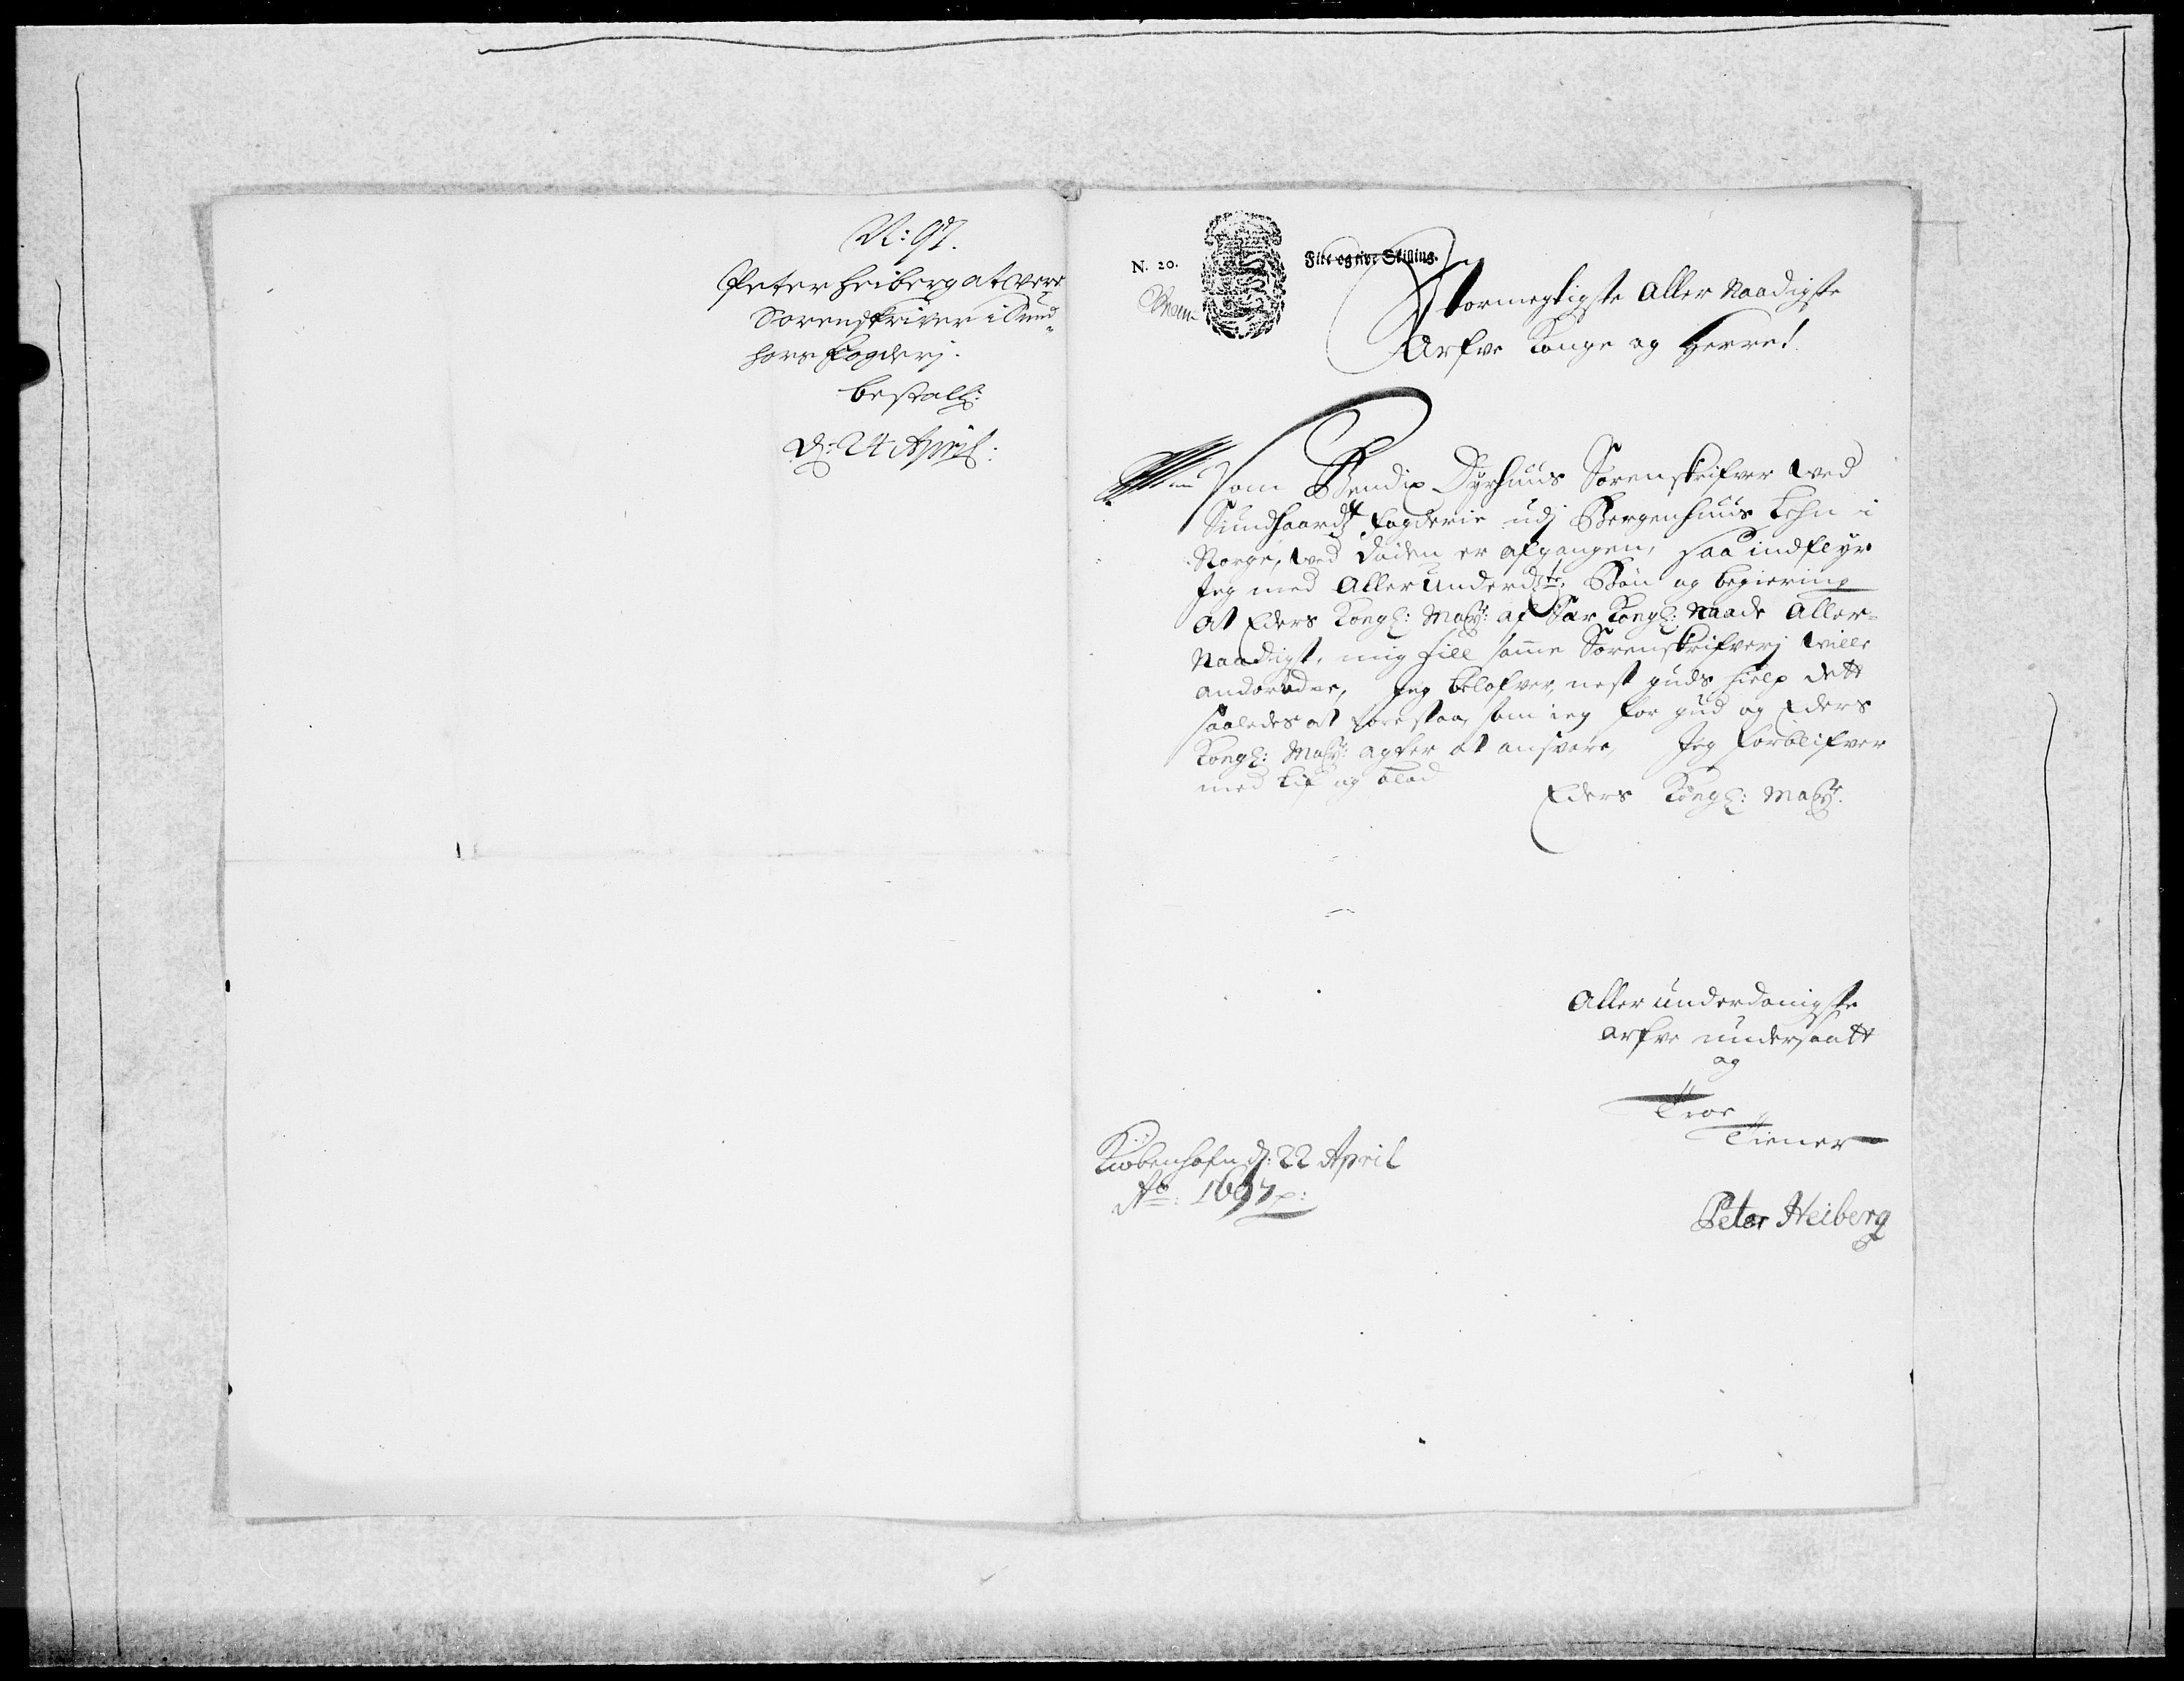 N: 97.
Peter Heiberg at vere
Sorenskriver i Sund-
hors Fogderj.
bestall:
d: 24 April:
N. 20.
Fire og tive Skilling.
Stormegtigste Aller Naadigste
Arfve Konge og Herre!
Som Bendix Dyrhuus Sorenskrifver ved
Sundhaardz fogderie udj Bergenhuus Lehn i
Norge, ved døden er afgangen, saa indflyr
Jeg med Allerunderdste: Bøn og begiering
at Eders Kongl: Mayt: af Sær Kongl: Naade Aller-
Naadigst, mig till samme Sorenskrifverj wille
andordne, Jeg belofver, nest guds hielp dett
saaledes at forestaa, som ieg for gud og Eders
Kongl: Mayt: agter at ansvare, Jeg forblifver
med lif og blod
Eders Kongl: Mayt.
Aller underdanigste
arfve undersaatt
og
Troe
Tiener
Kiøbenhafn d: 22 April
Ao: 1697:
Peter Heiberg